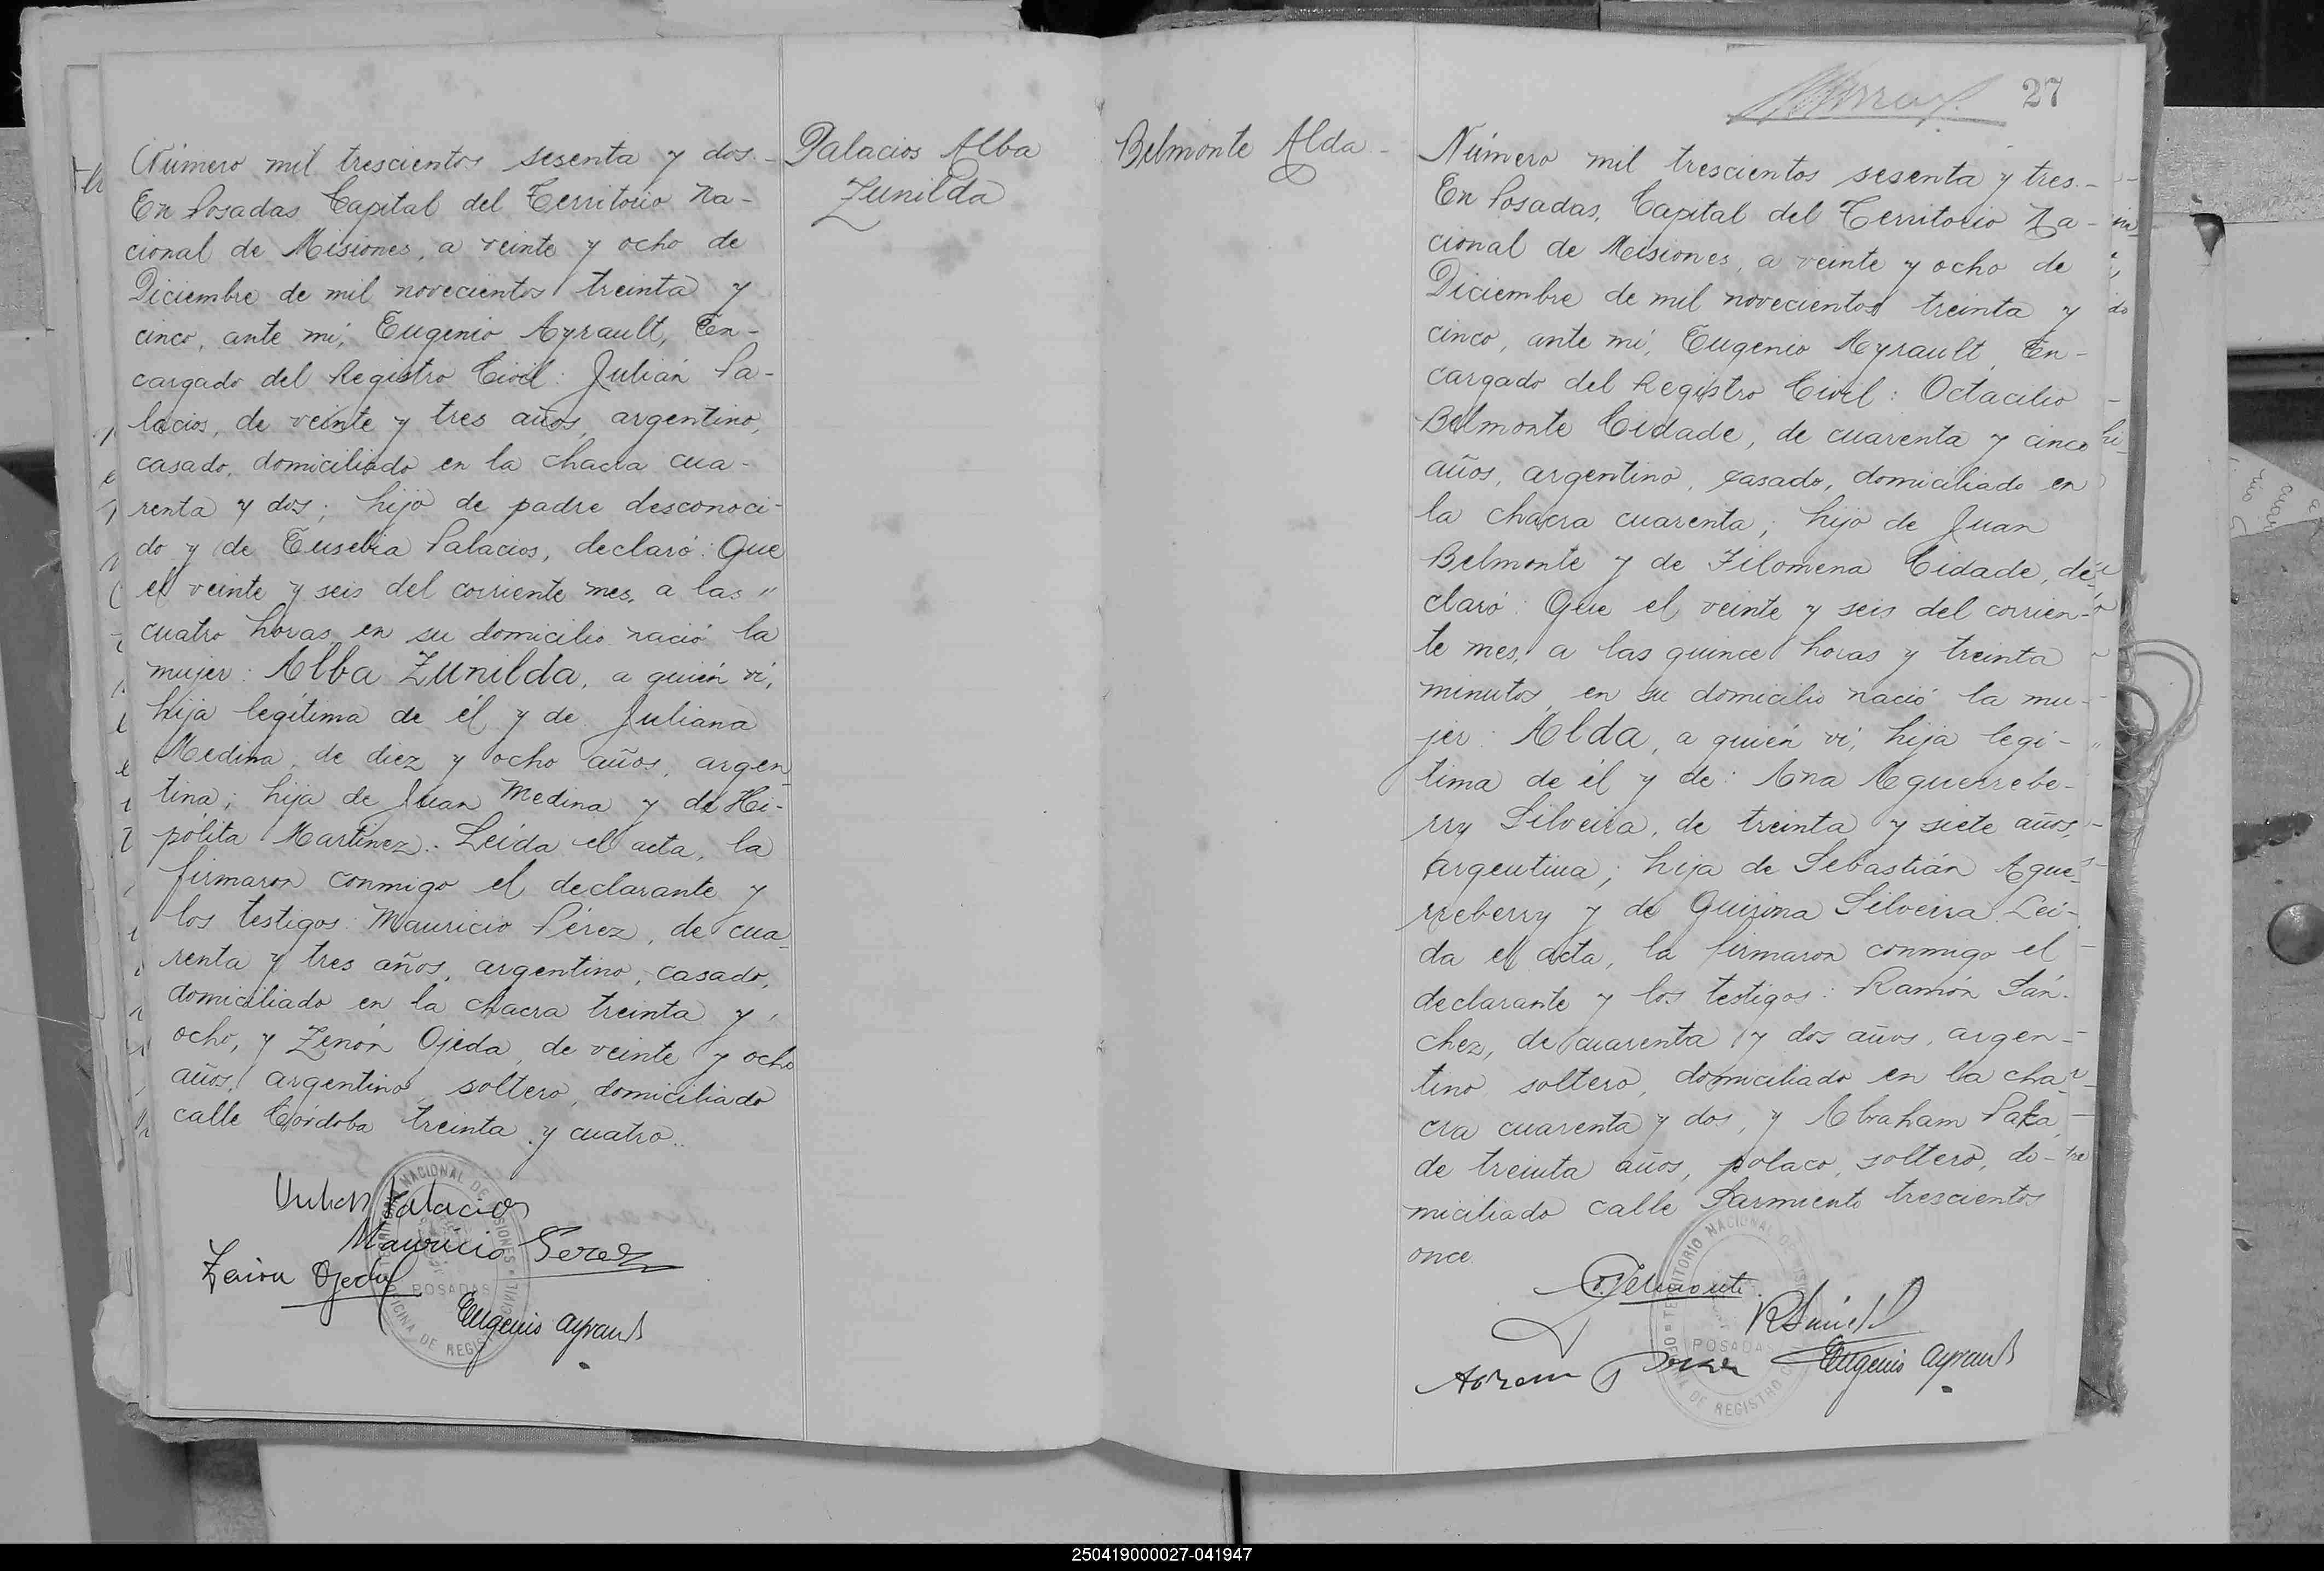 Número mil trescientos sesenta y dos.-
En Posadas Capital del Territorio Na-
cional de Misiones, a veinte y ocho de
Diciembre de mil novecientos treinta y
cinco, ante mí, Eugenio Ayrault, En-
cargado del Registro Civil: Julián Pa-
lacios, de veinte y tres años, argentino,
casado, domiciliado en la chacra cua-
renta y dos; hijo de padre desconoci-
do y de Eusebia Palacios, declaró: Que
el veinte y seis del corriente mes, a las "
cuatro horas en su domicilio nació la
mujer: Alba Zunilda, a quién ví,
hija legítima de él y de Juliana
Medina, de diez y ocho años, argen-
tina; hija de Juan Medina y de Hi-
pólita Martinez.- Leída el acta, la
firmaron conmigo el declarante y
los testigos: Mauricio Pérez, de cua-
renta y tres años, argentino, casado,
domiciliado en la chacra treinta y
ocho, y Zenón Ojeda, de veinte y ocho
años, argentino, soltero, domiciliado
calle Córdoba treinta y cuatro..
Julian Palacios
Mauricio Perez
Zenon Ojeda
Eugenio Ayrault
POSADAS
Palacios Alba
Zunilda
Belmonte Alda -
27
Número mil trescientos sesenta y tres.-
En Posadas, Capital del Territorio Na-
cional de Misiones, a veinte y ocho de
Diciembre de mil novecientos treinta y
cinco, ante mí, Eugenio Ayrault, En-
cargado del Registro Civil: Octacilio
Belmonte Cidade, de cuarenta y cinco
años, argentino, casado, domiciliado en
la chacra cuarenta; hijo de Juan
Belmonte y de Filomena Cidade, de-
claró: Que el veinte y seis del corrien-
te mes, a las quince horas y treinta
minutos, en su domicilio nació la mu-
jer: Alda, a quién ví, hija legí-
tima de él y de: Ana Aguerrebe-
rry Silveira, de treinta y siete años,
argentina; hija de Sebastián Ague-
rreberry y de Quirina Silveira. Leí-
da el acta, la firmaron conmigo el
declarante y los testigos: Ramón Sán-
chez, de cuarenta y dos años, argen-
tino, soltero, domiciliado en la cha-
cra cuarenta y dos, y Abraham Paka,
de treinta años, polaco, soltero, do-
miciliado calle Sarmiento trescientos
once.
O. Belmonte
Eugenio Ayrault
POSADAS
250419000027-041947